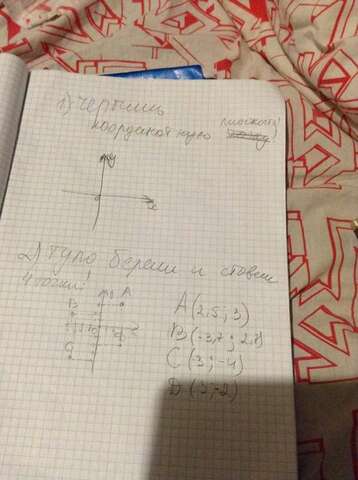 1) Чертишь
координатную плоскость!
y
0
x
2) Тупо берёш и ставиш
4 точки!
A
B
y
A(2,5; 3)
B(-3,7; 2,8)
C(3; -4)
D(3;-2)